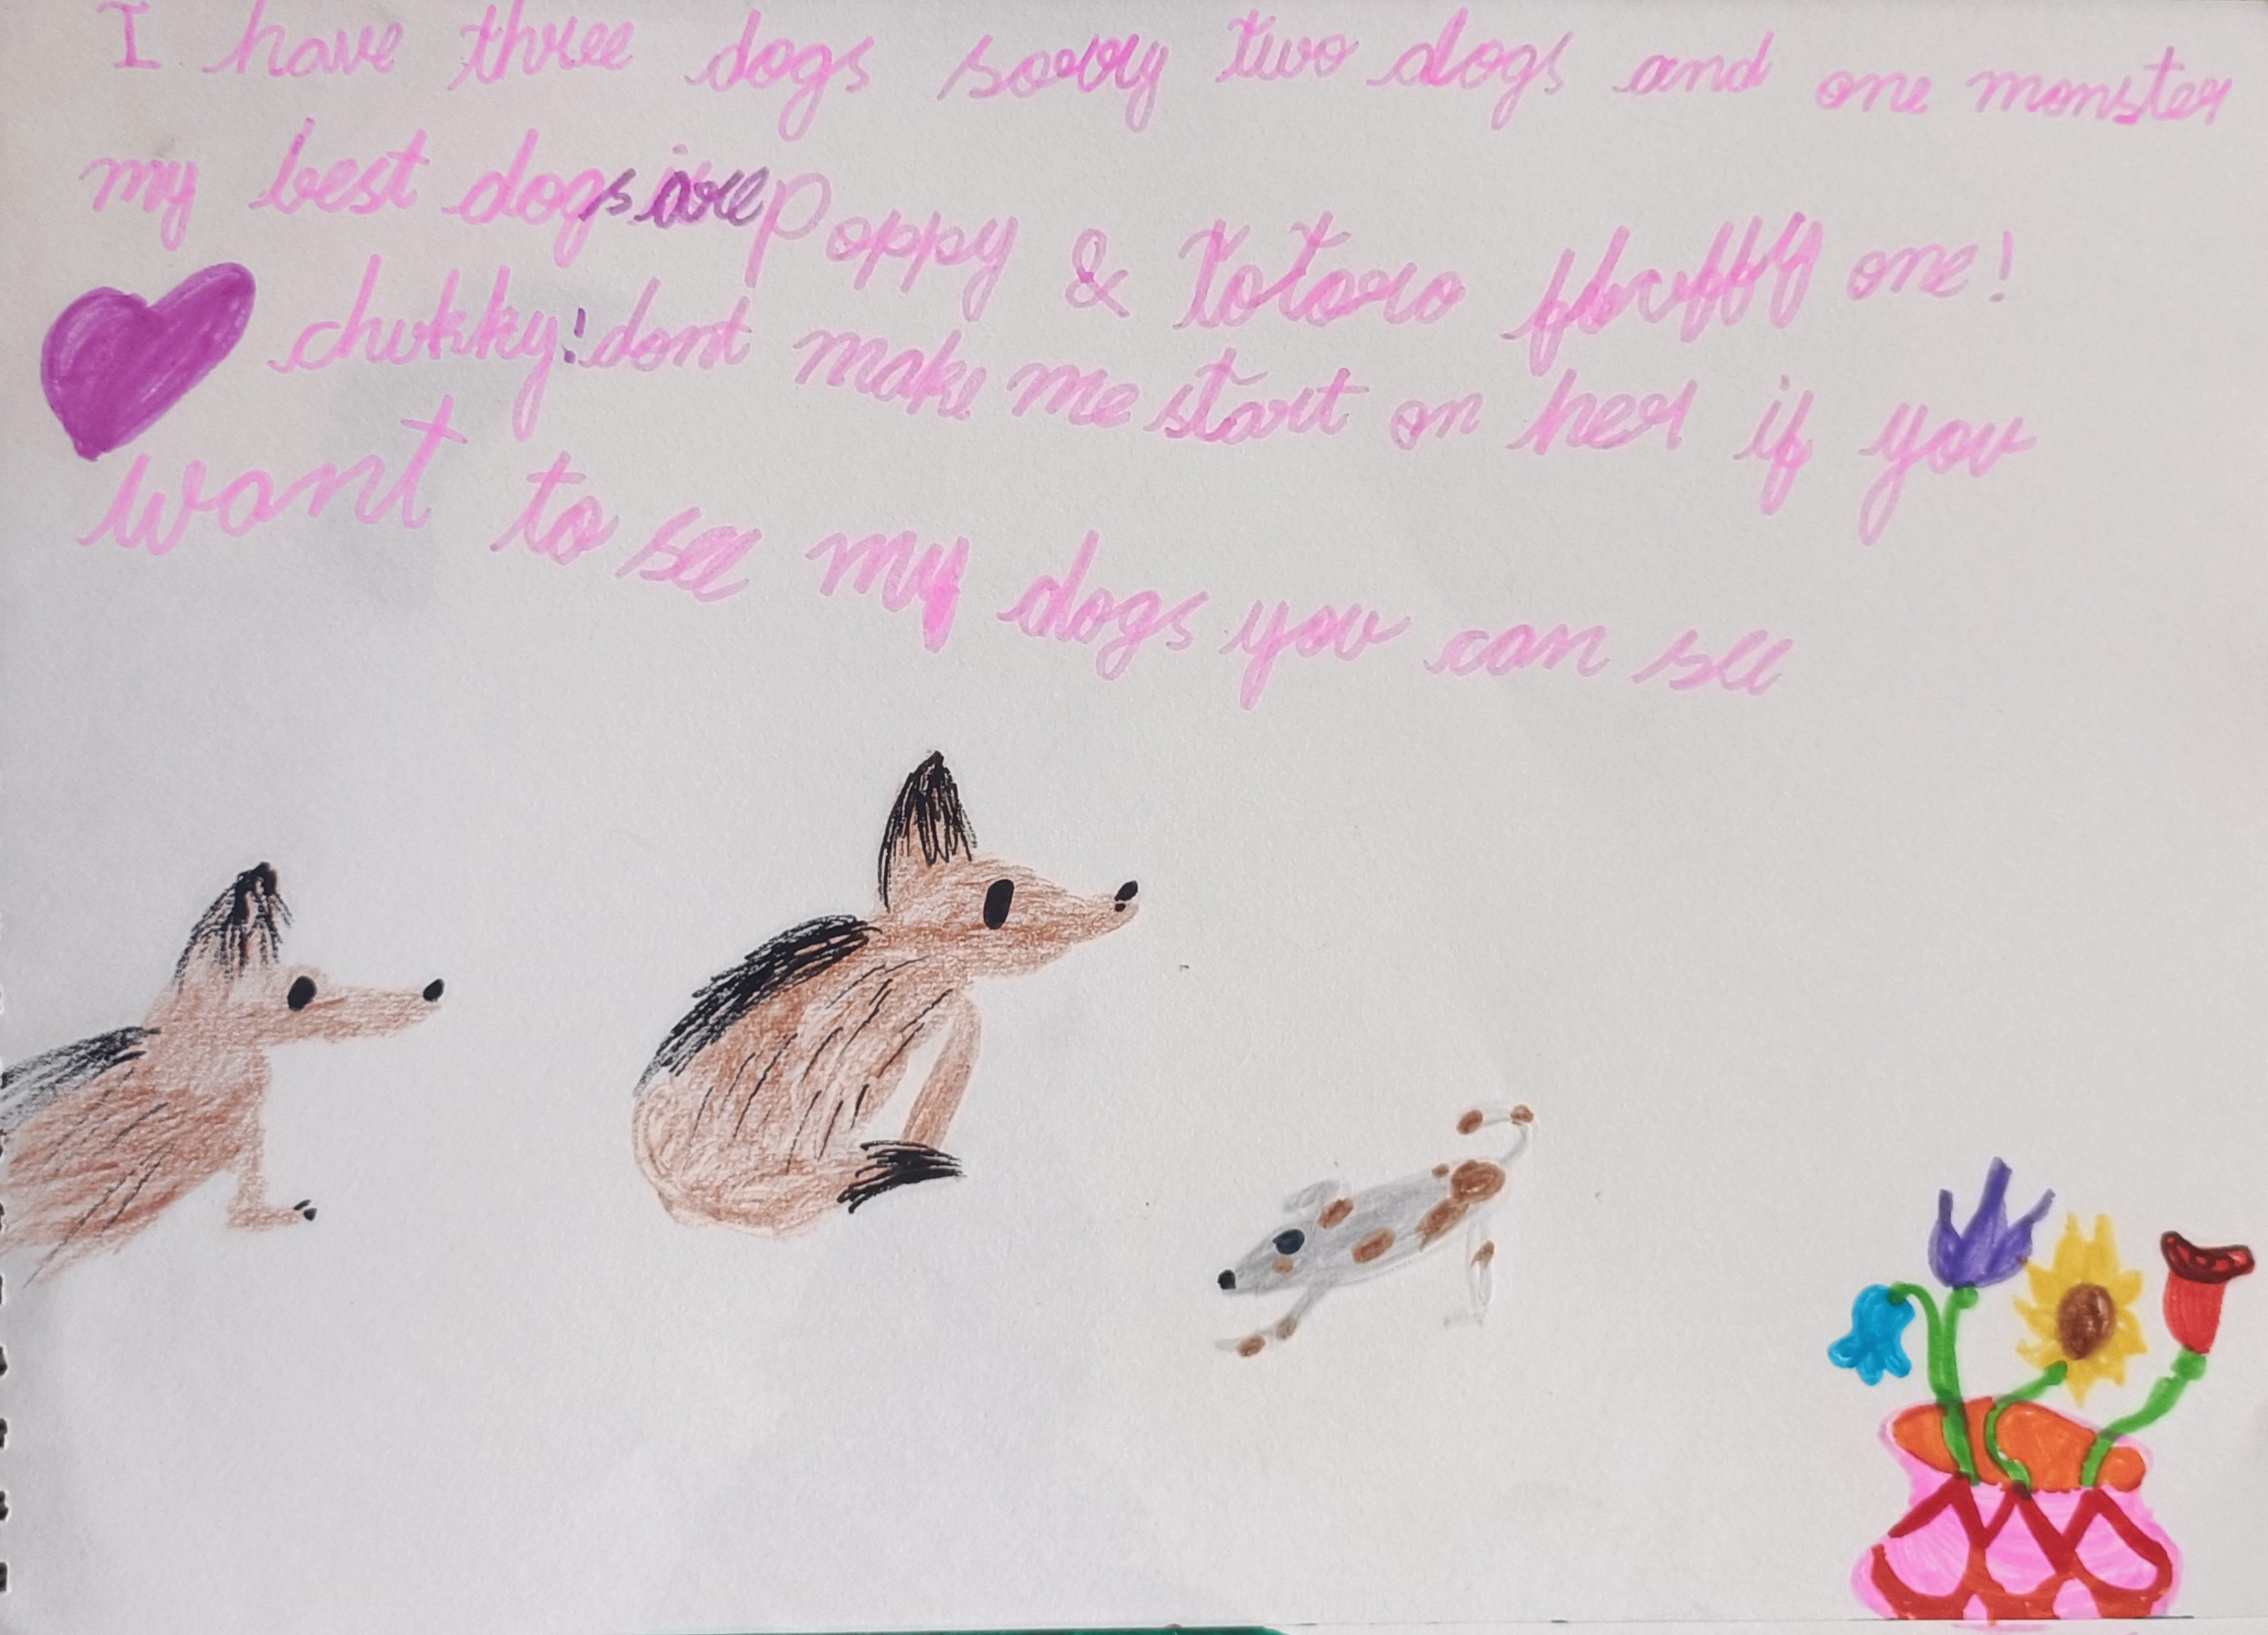 I have three dogs sorry two dogs and one monster
my best dogs are Poppy & Totoro fluffy one!
chukky! dont make me start on her if you
want to see my dogs you can see